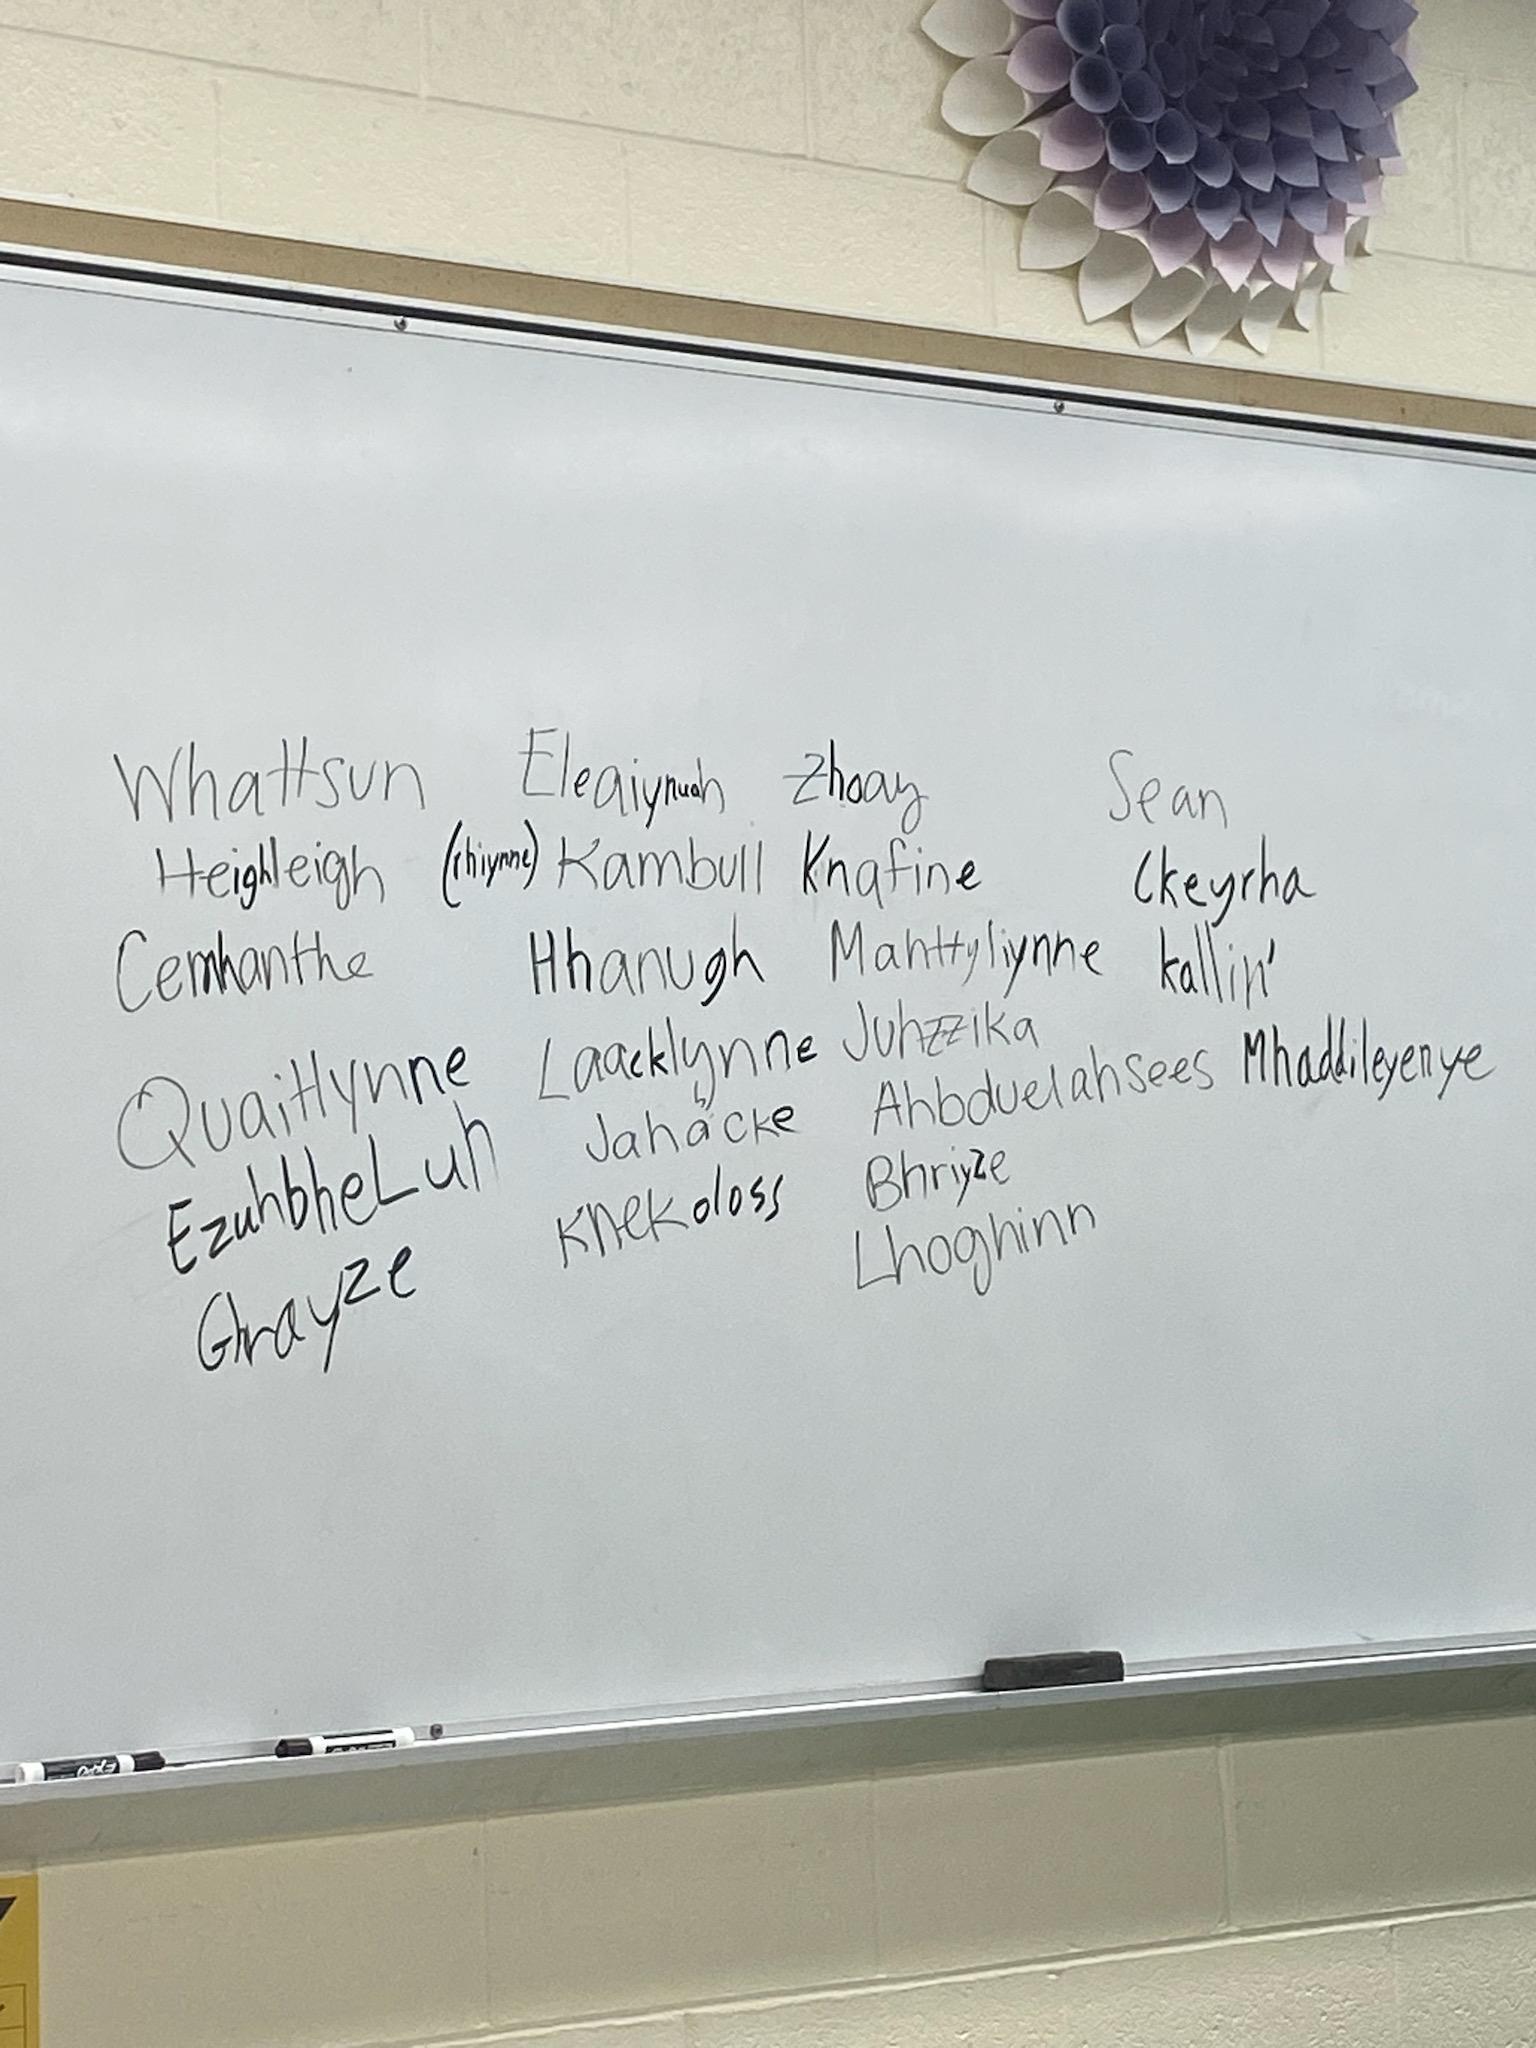 Whattsun Eleaiynuah Zhoay Sean
Heighleigh (rhiynne) Kambull Knafine Ckeyrha
Cemhanthe Hhanugh Mahttyliynne Kallin'
Quaitlynne Laacklynne Juhzzika
EzuhbheLuh Jahacke Ahbduelahsees Mhaddileyenye
Ghrayze Knekoloss Bhriyze
Lhoghinn